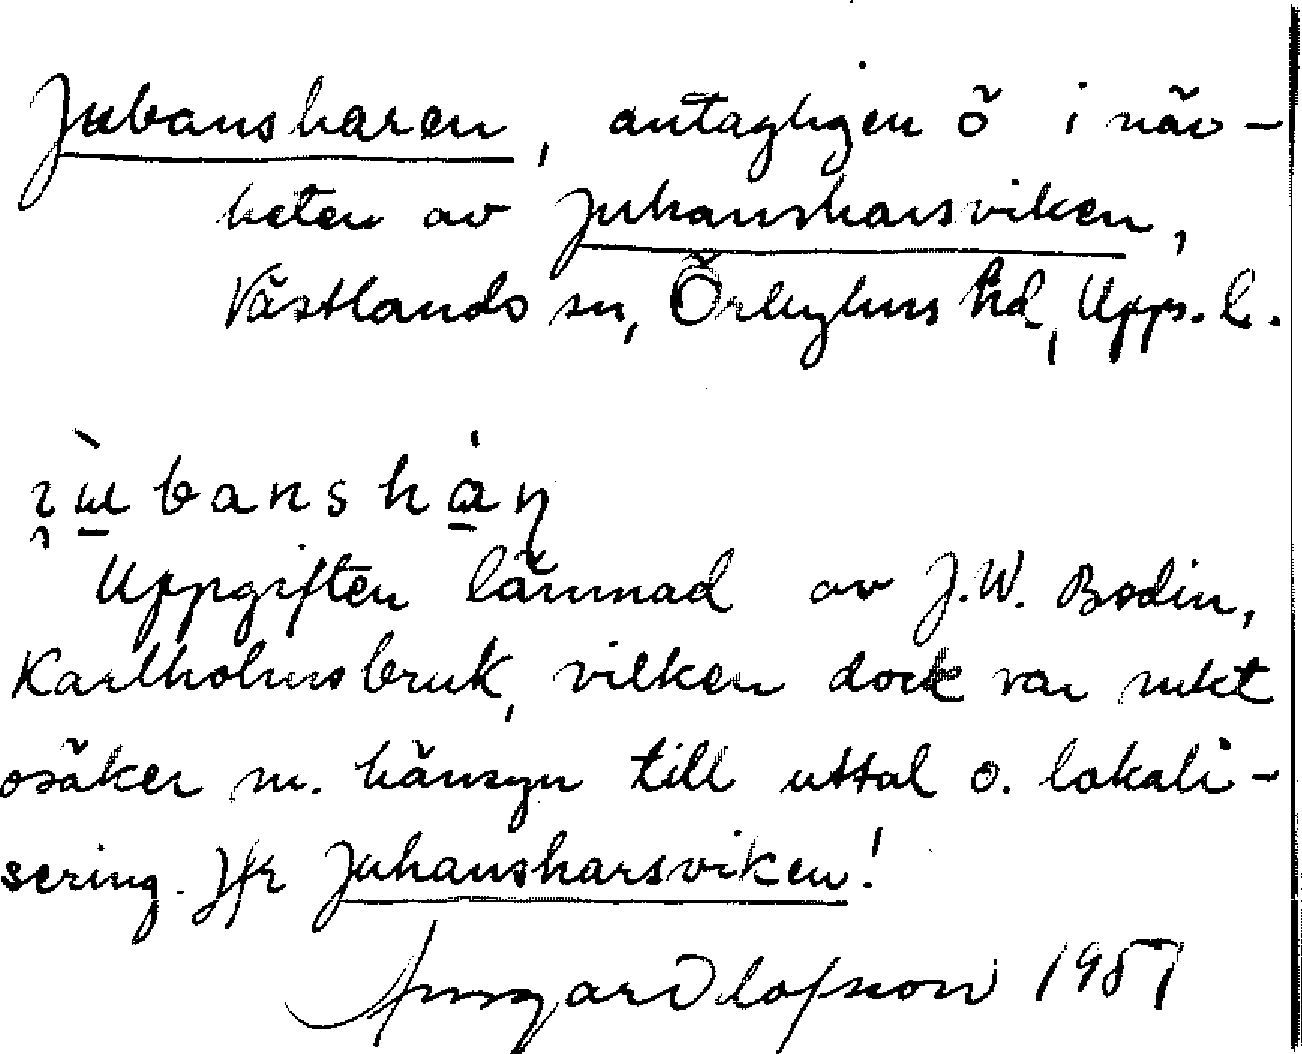 Jubansharen, antagligen ö i när-
heten av Juhansharsviken,
Västlands sn, Örbyhus hd, Upps. l.
Uppgiften lämnad av J.W. Bodin,
Karlholmsbruk, vilken dock var mkt
osäker m. hänsyn till uttal o. lokali-
sering. Jfr Juhansharsviken!
Ansgar Olofsson 1951